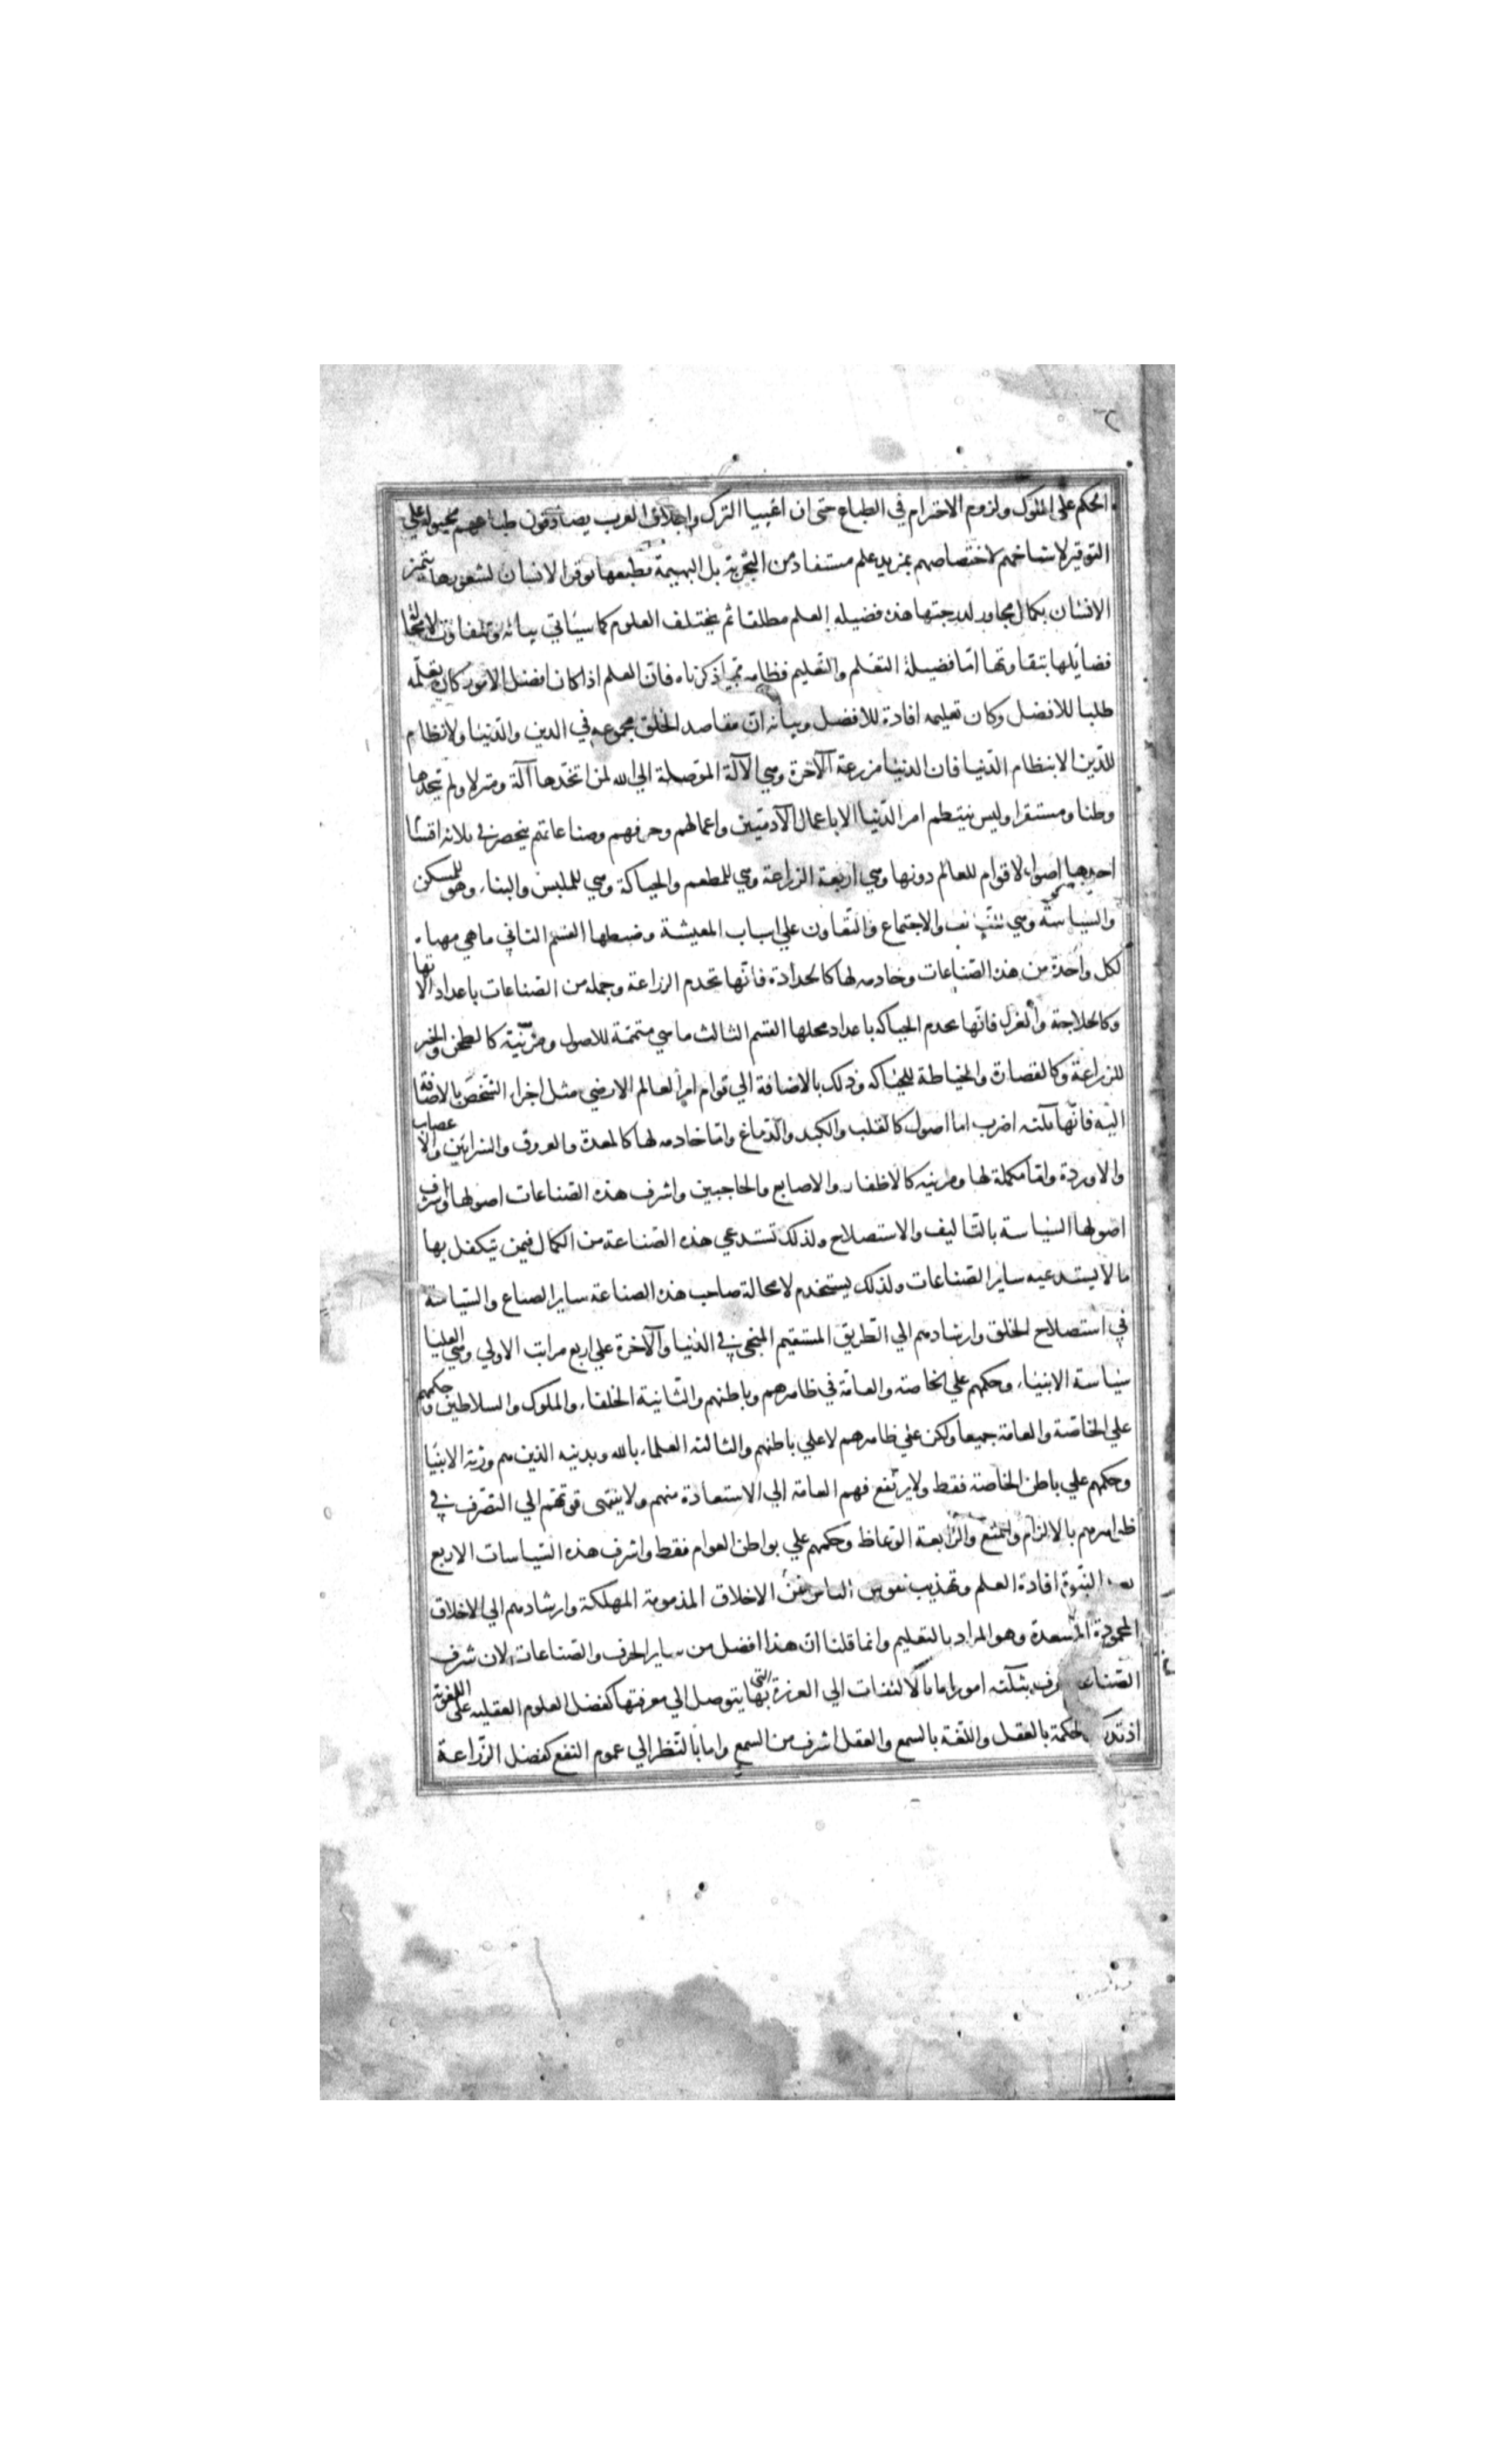 ٣٢
الحكم على الملوك ولزوم الاحترام في الطباع حتى ان اغبيا الترك واجلاف العرب يصادفون طباعهم مجبولة علي
التوقير لاشياخهم لاختصاصهم بمزيد علم مستفاد من التجربة بل البهيمة بطبعها توقر الانسان لشعورها بتميز
الانسان بكمال مجاوز لدرجتها هذه فضيله العلم مطلقا ثم يختلف العلوم كما سياتي بيانه وتتفاوت لامحالة
فضايلها بتفاوتها اما فضيلة التعلم والتعليم فظاهرة مما ذكرناه فان العلم اذا كان افضل الامور كان تعلمه
طلبا للافضل وكان تعليمه افادة للافضل وبيانه ان مقاصد الخلق مجموعه في الدين والدنيا ولا نظام
للدين الا بنظام الدنيا فان الدنيا مزرعة الآخرة وهي الآلة الموصلة الي الله لمن اتخذها آلة ومنزلا ولم يتخذها
وطنا ومستقرا وليس ينتظم امر الدنيا الا باعمال الآدميين واعمالهم وحرفهم وصناعاتهم ينحصر في ثلاثه اقسا
احديها اصول لا قوام للعالم دونها وهي اربعة الزراعة وهي للمطعم والحياكة وهي للملبس والبناء وهو للمسكن
والسياسة وهي للتاليف والاجتماع والتعاون علي اسباب المعيشة وضبطها القسم الثاني ما هي مهياة
لكل واحدة من هذه الصناعات وخادمه لها كالحدادة فانها تخدم الزراعة وجملة من الصناعات باعداد الاتها
وكالحلاجة والغزل فانها تخدم الحياكه باعداد محلها القسم الثالث ما هي متممة للاصول ومزينة كالطحن والخبز
للزراعة وكالقصارة والخياطة للحياكه وذلك بالاضافة الي قوام امر العالم الارضي مثل اجزاء الشخص بالاضافة
اليه فانها ثلثه اضرب اما اصول كالقلب والكبد والدماغ واما خادمه لها كالمعدة والعروق والشرايين والاعصاب
والاوردة واما مكملة لها ومزينه كالاظفار والاصابع والحاجبين واشرف هذه الصناعات اصولها واشرف
اصولها السياسة بالتاليف والاستصلاح ولذلك تستدعي هذه الصناعة من الكمال فيمن يتكفل بها
ما لا يستدعيه ساير الصناعات ولذلك يستخدم لا محالة صاحب هذه الصناعة ساير الصناع والسياسة
في استصلاح الخلق وارشادهم الي الطريق المستقيم المنجي في الدنيا والآخرة علي اربع مراتب الاولي وهي العليا
سياسة الانبياء وحكمهم علي الخاصة والعامة في ظاهرهم وباطنهم والثانية الخلفاء والملوك والسلاطين وحكمهم
علي الخاصة والعامة جميعا ولكن علي ظاهرهم لا علي باطنهم والثالثه العلماء بالله وبدينه الذين هم ورثة الانبيا
وحكمهم علي باطن الخاصة فقط ولا يرتفع فهم العامة الي الاستفادة منهم ولا ينتهى قوتهم الي التصرف في
ظواهرهم بالالزام والمنع والرابعة الوعاظ وحكمهم علي بواطن العوام فقط واشرف هذه السياسات الاربع
بعد النبوة افادة العلم وتهذيب نفوس الناس عن الاخلاق المذمومة المهلكة وارشادهم الي الاخلاق
المحمودة المسعدة وهو المراد بالتعليم وانما قلنا ان هذا افضل من ساير الحرف والصناعات لان شرف
الصناعة يعرف بثلثه امور اما بالالتفات الي الغريزة التي بها يتوصل الي معرفتها كفضل العلوم العقليه على اللغوية
اذ تدرك الحكمة بالعقل واللغة بالسمع والعقل اشرف من السمع واما بالنظر الي عموم النفع كفضل الزراعة